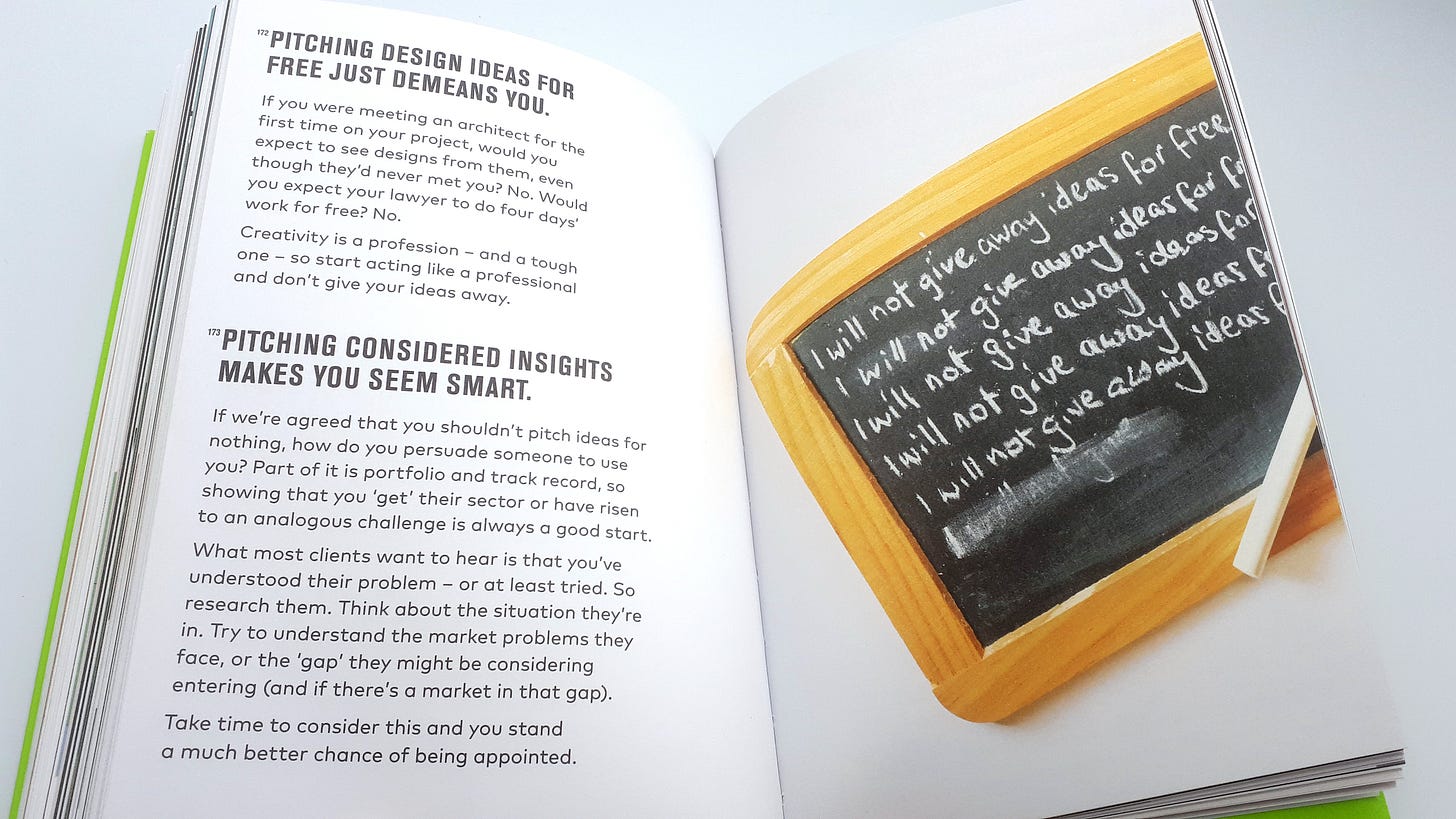 172 PITCHING DESIGN IDEAS FOR
FREE JUST DEMEANS YOU.
If you were meeting an architect for the
first time on your project, would you
expect to see designs from them, even
though they’d never met you? No. Would
you expect your lawyer to do four days’
work for free? No.
Creativity is a profession – and a tough
one – so start acting like a professional
and don’t give your ideas away.
173 PITCHING CONSIDERED INSIGHTS
MAKES YOU SEEM SMART.
If we’re agreed that you shouldn’t pitch ideas for
nothing, how do you persuade someone to use
you? Part of it is portfolio and track record, so
showing that you ‘get’ their sector or have risen
to an analogous challenge is always a good start.
What most clients want to hear is that you’ve
understood their problem – or at least tried. So
research them. Think about the situation they’re
in. Try to understand the market problems they
face, or the ‘gap’ they might be considering
entering (and if there’s a market in that gap).
Take time to consider this and you stand
a much better chance of being appointed.
I will not give away ideas for free
I will not give away ideas for
I will not give away ideas for
I will not give away ideas
I will not give away ideas